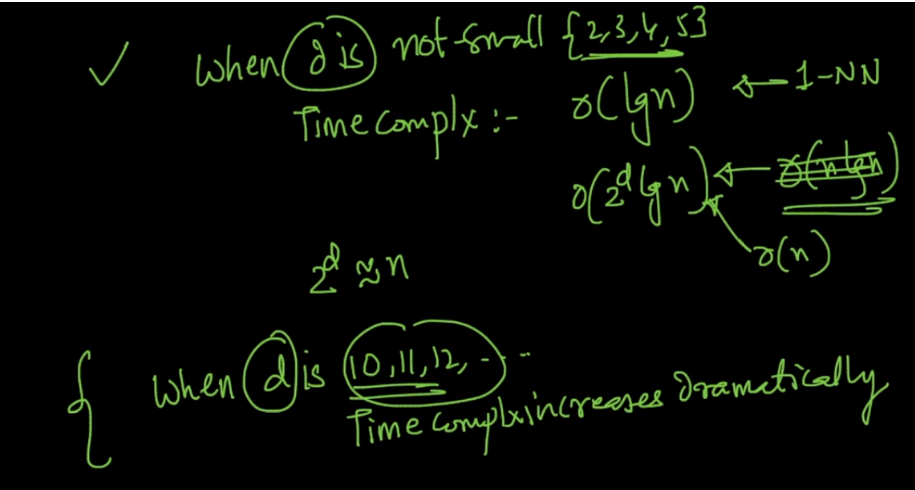 ✓ when d is not small {2,3,4,5}
Time complx :- O(lgn) ← 1-NN
O(2^d lgn) ← O(n lgn)
O(n)
2^d ≈ n
{ when d is 10,11,12, ...
Time complx increases dramatically